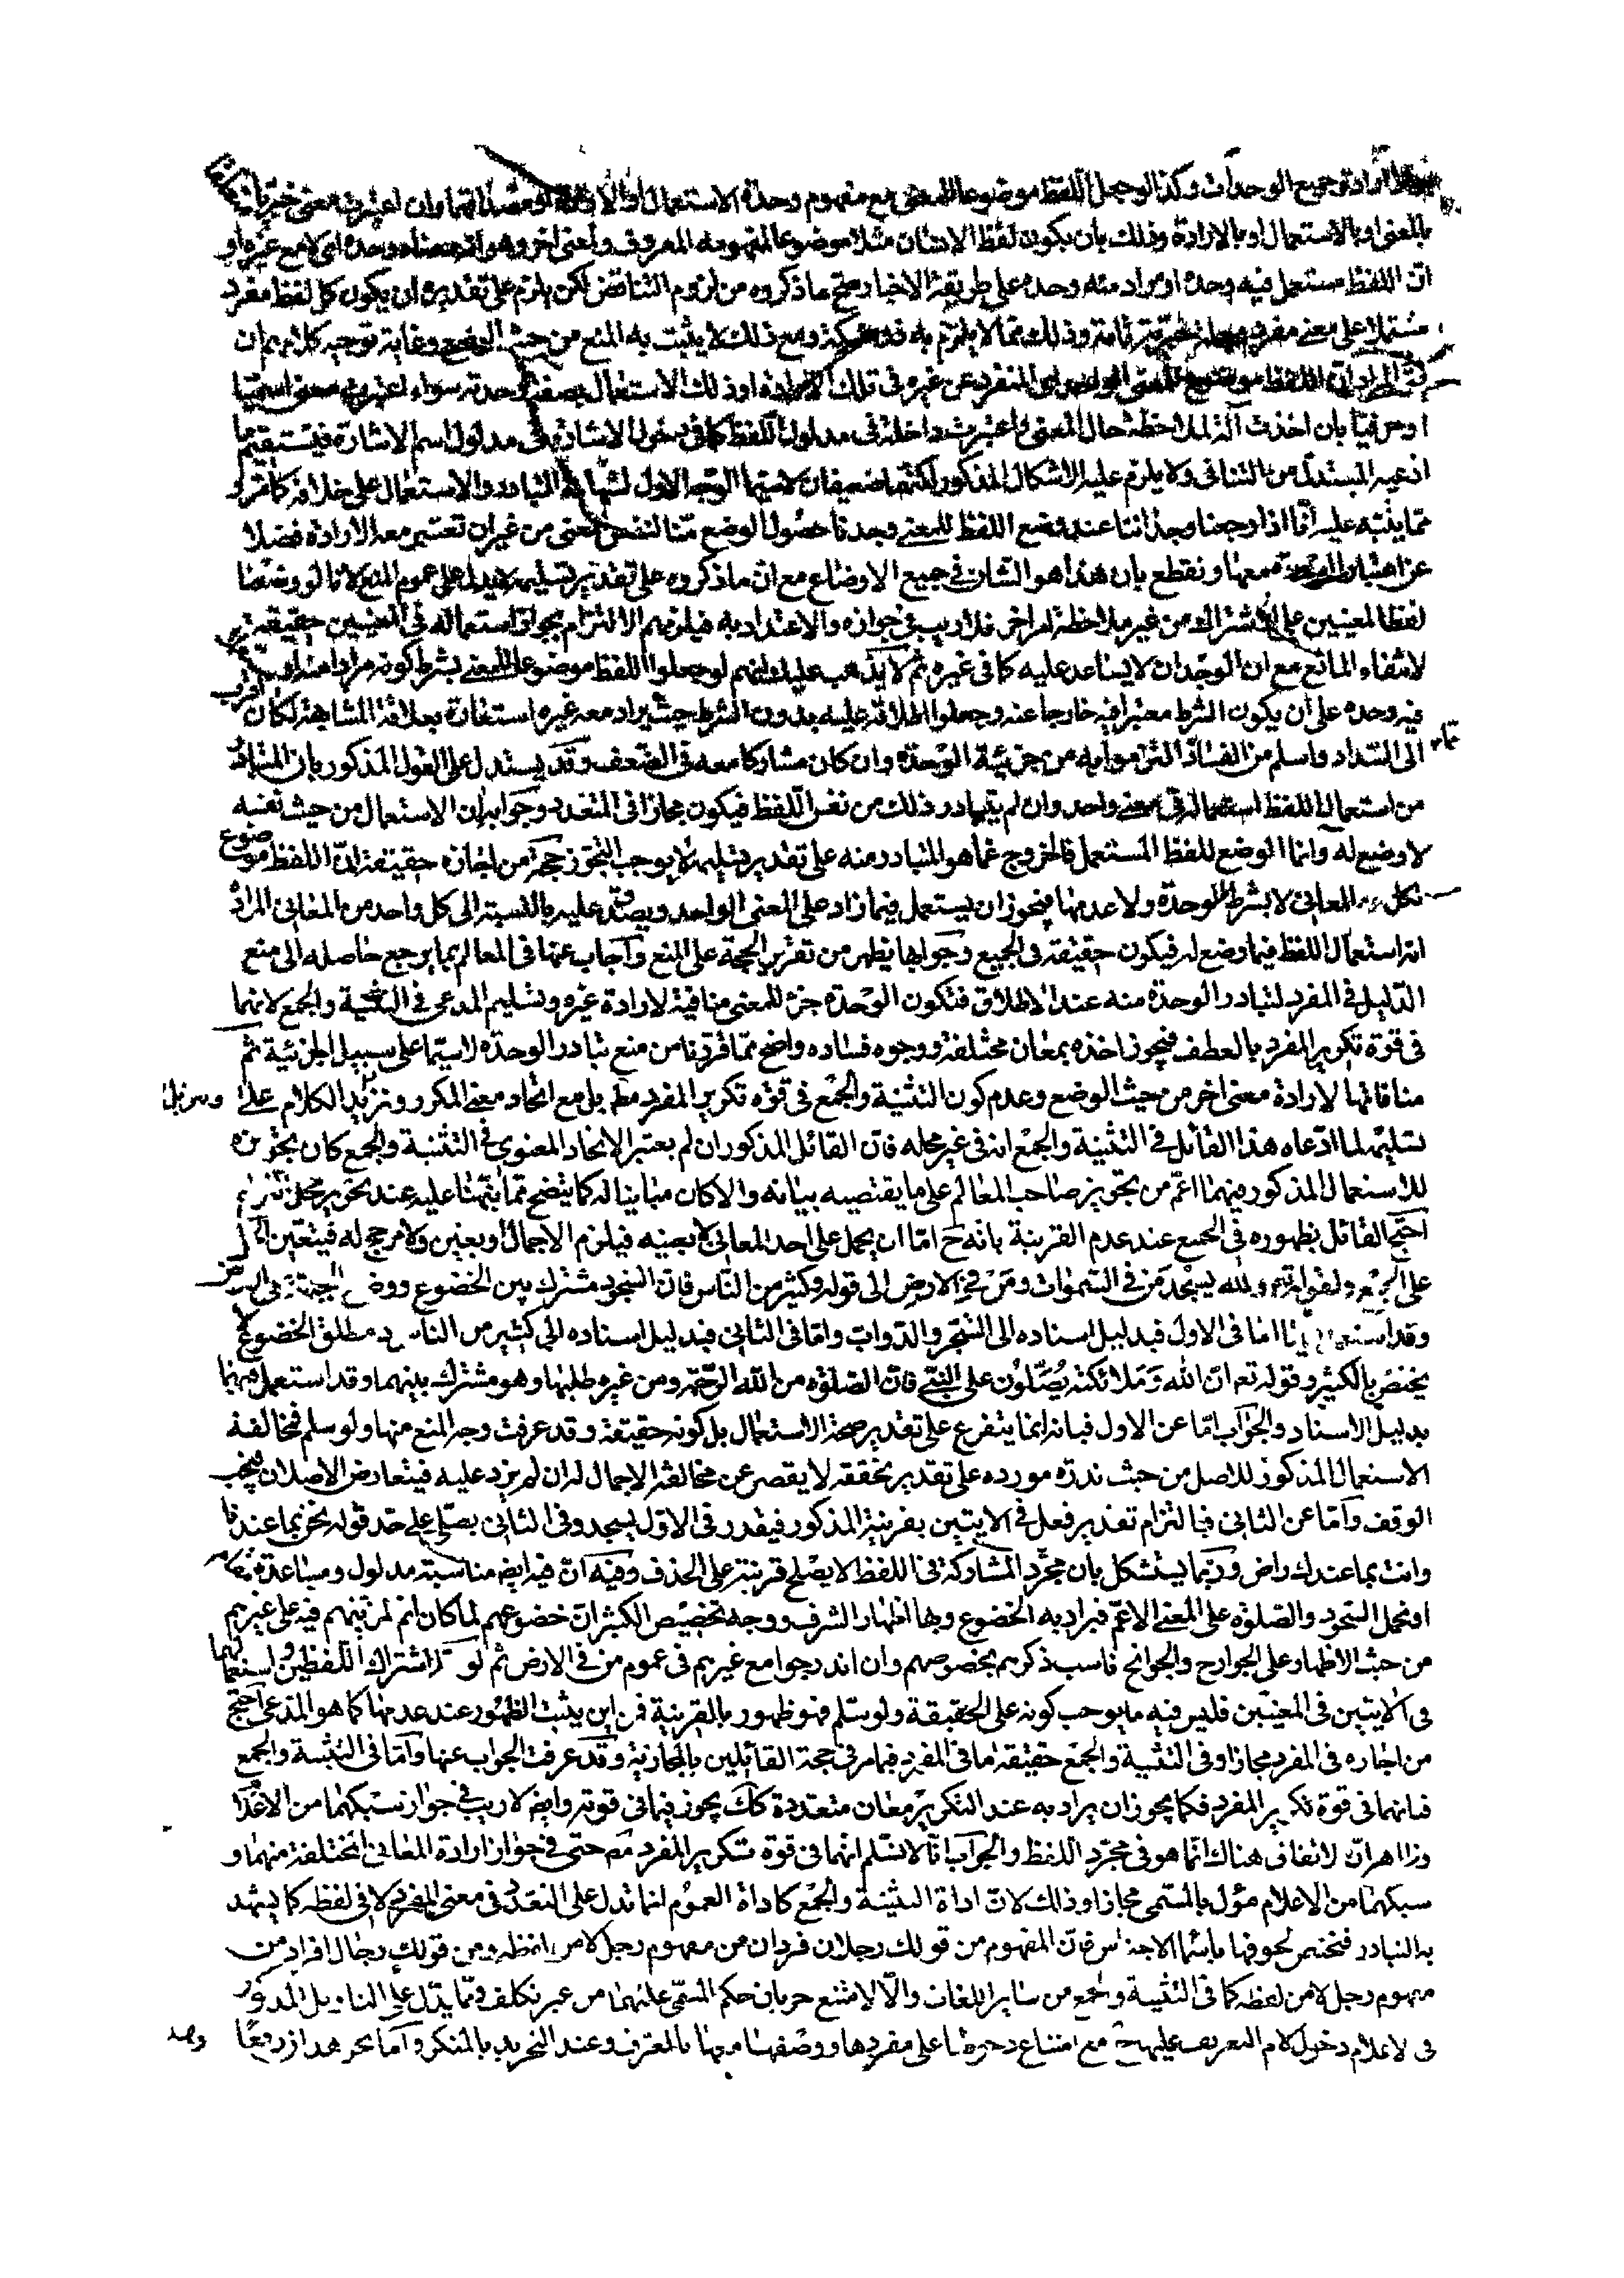 الارادة جميع الوحدات وكذا لو جعل اللفظ موضوعا للمعنى مع مفهوم وحدة الاستعمال او الارادة وان اعتبرت معنى خبريا
بالمعنى او بالاستعمال او بالارادة وذلك بان يكون لفظ الانسان مثلا موضوعا لمفهومه المعروف ولمعنى اخر وهو وحده اى لا مع غيره او
ان اللفظ مستعمل فيه وحده او مراد منه وحده على طريقة الاخبار صح ما ذكروه من لزوم التناقض لكن يلزم على تقديره ان يكون كل لفظ مفرد
مشتملا على معنى مفرد خبرية تامة وذلك مما لا يلتزم به ومع ذلك لا يثبت به المنع من حيث الوضع وغاية توجيه كلامهم ان
المراد ان اللفظ موضوع للمعنى المنفرد عن غيره فى تلك الارادة او ذلك الاستعمال بصفة وحدته سواء اعتبرت معنى اسميا
او حرفيا بان اخذت آلة لملاحظة حال المعنى واعتبرت داخلة فى مدلول اللفظ كما فى دخول الاشارة فى مدلول اسم الاشارة فيستقيم ما
ادعيه المستدل من التنافى ولا يلزم عليه الاشكال المذكور لكنهما ضعيفان لا سيما الوجه الاول لشهادة التبادر والاستعمال على خلافه كما مر و
مما ينبه عليه انا اذا رجعنا وجداننا عند وضع اللفظ للمعنى وجدنا حصول الوضع منا لنفس المعنى من غير ان تعتبر معه الارادة فضلا
عن اعتبار معها ونقطع بان هذا هو الشان فى جميع الاوضاع مع ان ما ذكروه على تقدير تسليمه لا يدل على عموم المنع لانا لو وضعنا
لفظا لمعنيين على الاشتراك من غير ملاحظة امر اخر فلا ريب فى جوازه والاعتداد به فيلزمهم الالتزام بجواز استعماله فى المعنيين حقيقة
لانتفاء المانع مع ان الوجدان لا يساعد عليه كما فى غيره ثم لا يذهب عليك انهم لو جعلوا اللفظ موضوعا للمعنى بشرط كونه مرادا منه او
فيه وحده على ان يكون الشرط معتبرا فيه خارجا عنه وجعلوا اطلاقه عليه بدون الشرط حيث يراد معه غيره استعارة بعلاقة المشابهة لكان اقرب
الى السداد واسلم من الفساد التزموا به من جزئية الوحدة وان كان مشاركا معه فى الضعف وقد يستدل على القول المذكور بان المتبادر
من استعمال اللفظ استعماله فى معنى واحد وان لم يتبادر ذلك من نفس اللفظ فيكون مجازا فى المتعدد وجوابه ان الاستعمال من حيث نفسه
لا وضع له وانما الوضع للفظ المستعمل فالخروج عما هو المتبادر منه على تقدير تسليمه لا يوجب التجوز حجة من اجازه حقيقة ان اللفظ موضوع
لكل من المعانى لا بشرط الوحدة ولا عدمها فيجوز ان يستعمل فيما زاد على المعنى الواحد ويصدق عليه بالنسبة الى كل واحد من المعانى المرادة
انه استعمال اللفظ فيما وضع له فيكون حقيقة فى الجميع وجوابها يظهر من تقرير الحجة على المنع وأجاب عنها فى المعالم بما يرجع حاصله الى منع
الدليل فى المفرد لتبادر الوحدة منه عند الاطلاق فتكون الوحدة جزء للمعنى منافية لارادة غيره وتسليم المدعى فى التثنية والجمع لانهما
فى قوة تكرير المفرد بالعطف فيجوز اخذه بمعان مختلفة ووجوه فساده واضح مما قررنا من منع تبادر الوحدة لا سيما على سبيل الجزئية ثم
منافاتها لارادة معنى اخر من حيث الوضع وعدم كون التثنية والجمع فى قوة تكرير المفرد مطم بل مع اتحاد معنى المكرر وتنزيل الكلام على
تسليمه لما ادعاه هذا القائل فى التثنية والجمع انه فى غير محله فان القائل المذكور ان لم يعتبر الاتحاد المعنوى فى التثنية والجمع كان تجويزه
للاستعمال المذكور فيهما اعم من تجويز صاحب المعالم على ما يقتضيه بيانه والا كان مباينا له كما يتضح مما نبهنا عليه عند تحرير محل النزاع
احتج القائل بظهوره فى الجميع عند عدم القرينة بانه ح اما ان يحمل على احد المعانى لا بعينه فيلزم الاجمال او بعينه ولا مرجح له فيتعين الحمل
على الجميع ولقوله تعم ولله يسجد من فى السموات ومن فى الارض الى قوله وكثير من الناس فان السجود مشترك بين الخضوع ووضع الجبهة على الارض
وقد استعمل اما فى الاول فبدليل اسناده الى الشجر والدواب واما فى الثانى فبدليل اسناده الى كثير من الناس اذ مطلق الخضوع لا
يختص بالكثير وقوله تعم ان الله وملائكته يصلون على النبى فان الصلوة من الله الرحمة ومن غيره طلبها وهو مشترك بينهما وقد استعمل فيهما
بدليل الاسناد والجواب اما عن الاول فبانه انما يتفرع على تقدير صحة الاستعمال بل كونه حقيقة وقد عرفت وجه المنع منها ولو سلم فمخالفة
الاستعمال المذكور للاصل من حيث ندرة مورده على تقدير تحققه لا يقصر عن مخالفة الاجمال له ان لم يزد عليه فيتعارض الاصلان فيجب
الوقف وأما عن الثانى فبالتزام تقدير فعل فى الآيتين بقرينة المذكور فيقدر فى الاول يسجد وفى الثانى يصلى على حد قوله نحن بما عندنا
وانت بما عندك راض وربما يستشكل بان مجرد المشاركة فى اللفظ لا يصلح قرينة على الحذف وفيه ان فيه ايضا مناسبة مدلول ومساعدة مقام
او بحمل السجود والصلوة على المعنى الاعم فيراد به الخضوع وبها اظهار الشرف ووجه تخصيص الكثير ان خضوعهم لما كان اتم لمزيتهم فيه على غيرهم
من حيث الاظهار على الجوارح والجوانح ناسب ذكرهم بخصوصهم وان اندرجوا مع غيرهم فى عموم من فى الارض ثم لو اشتراك اللفظين واستعمالهما
فى الآيتين فى المعنيين فليس فيه ما يوجب كونه على الحقيقة ولو سلم فهو ظهور بالقرينة فمن اين يثبت الظهور عند عدمها كما هو المدعى احتج
من اجازه فى المفرد مجازا وفى التثنية والجمع حقيقة اما فى المفرد فبما مر فى حجة القائلين بالمجازية وقد عرفت الجواب عنها وأما فى التثنية والجمع
فبانهما فى قوة تكرير المفرد فكما يجوز ان يراد به عند التكرير معان متعددة كك يجوز فيما فى قوته وايضا لا ريب فى جواز سبكهما من الاعلام
وظاهر ان الاتفاق هناك انما هو فى مجرد اللفظ والجواب انا لا نسلم انهما فى قوة تكرير المفرد مطم حتى فى جواز ارادة المعانى المختلفة منهما و
سبكهما من الاعلام مؤل بالمسمى مجازا وذلك لان اداة التثنية والجمع كاداة العموم انما تدل على التعدد فى معنى المفرد لا فى لفظه كما يشهد
به التبادر فتختص لحوقها باسماء الاجناس فان المفهوم من قولك رجلان فردان من مفهوم رجل لا من لفظه ومن قولك رجال افراد من
مفهوم رجل لا من لفظه كما فى التثنية والجمع من ساير اللغات والا لامتنع جريان حكم المسمى عليهما من غير تكلف ومما يدل على التاويل المذكور
فى الاعلام دخول لام التعريف عليهما مع امتناع دخولها على مفردها ووصفها معها بالمعرف وعند التجريد بالمنكر وأما